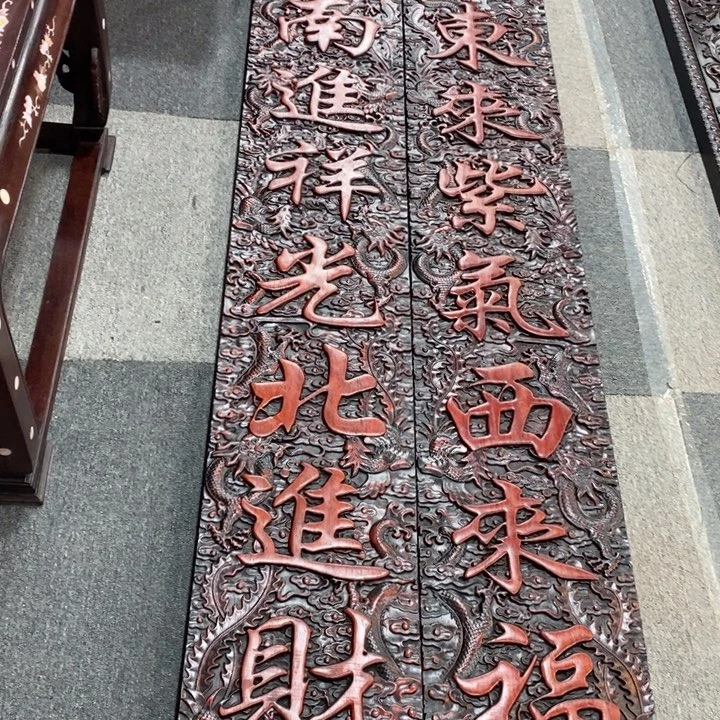 東來紫氣西來福
南進祥光北進財